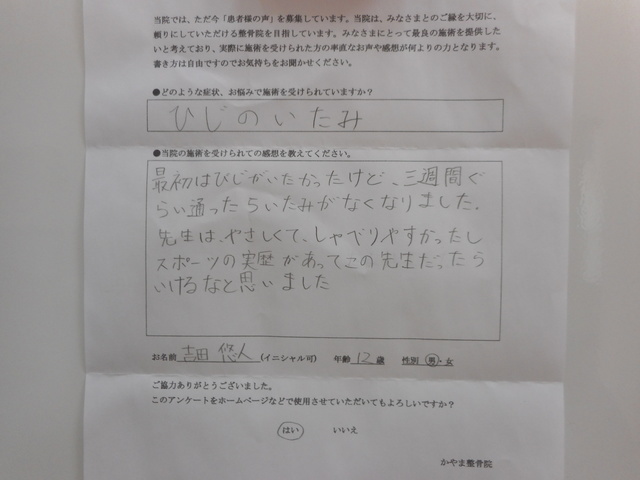 当院では、ただ今「患者様の声」を募集しています。当院は、みなさまとのご縁を大切に、
頼りにしていただける整骨院を目指しています。みなさまにとって最良の施術を提供した
いと考えており、実際に施術を受けられた方の率直なお声や感想が何よりの力となります。
書き方は自由ですのでお気持ちをお聞かせください。
●どのような症状、お悩みで施術を受けられていますか？
ひじのいたみ
●当院の施術を受けられての感想を教えてください。
最初はひじがいたかったけど、三週間ぐ
らい通ったらいたみがなくなりました。
先生は、やさしくて、しゃべりやすかったし
スポーツの実歴があってこの先生だったら
いけるなと思いました
お名前 吉田 悠人 (イニシャル可) 年齢 12 歳 性別 男・女
ご協力ありがとうございました。
このアンケートをホームページなどで使用させていただいてもよろしいですか？
はい いいえ
かやま整骨院